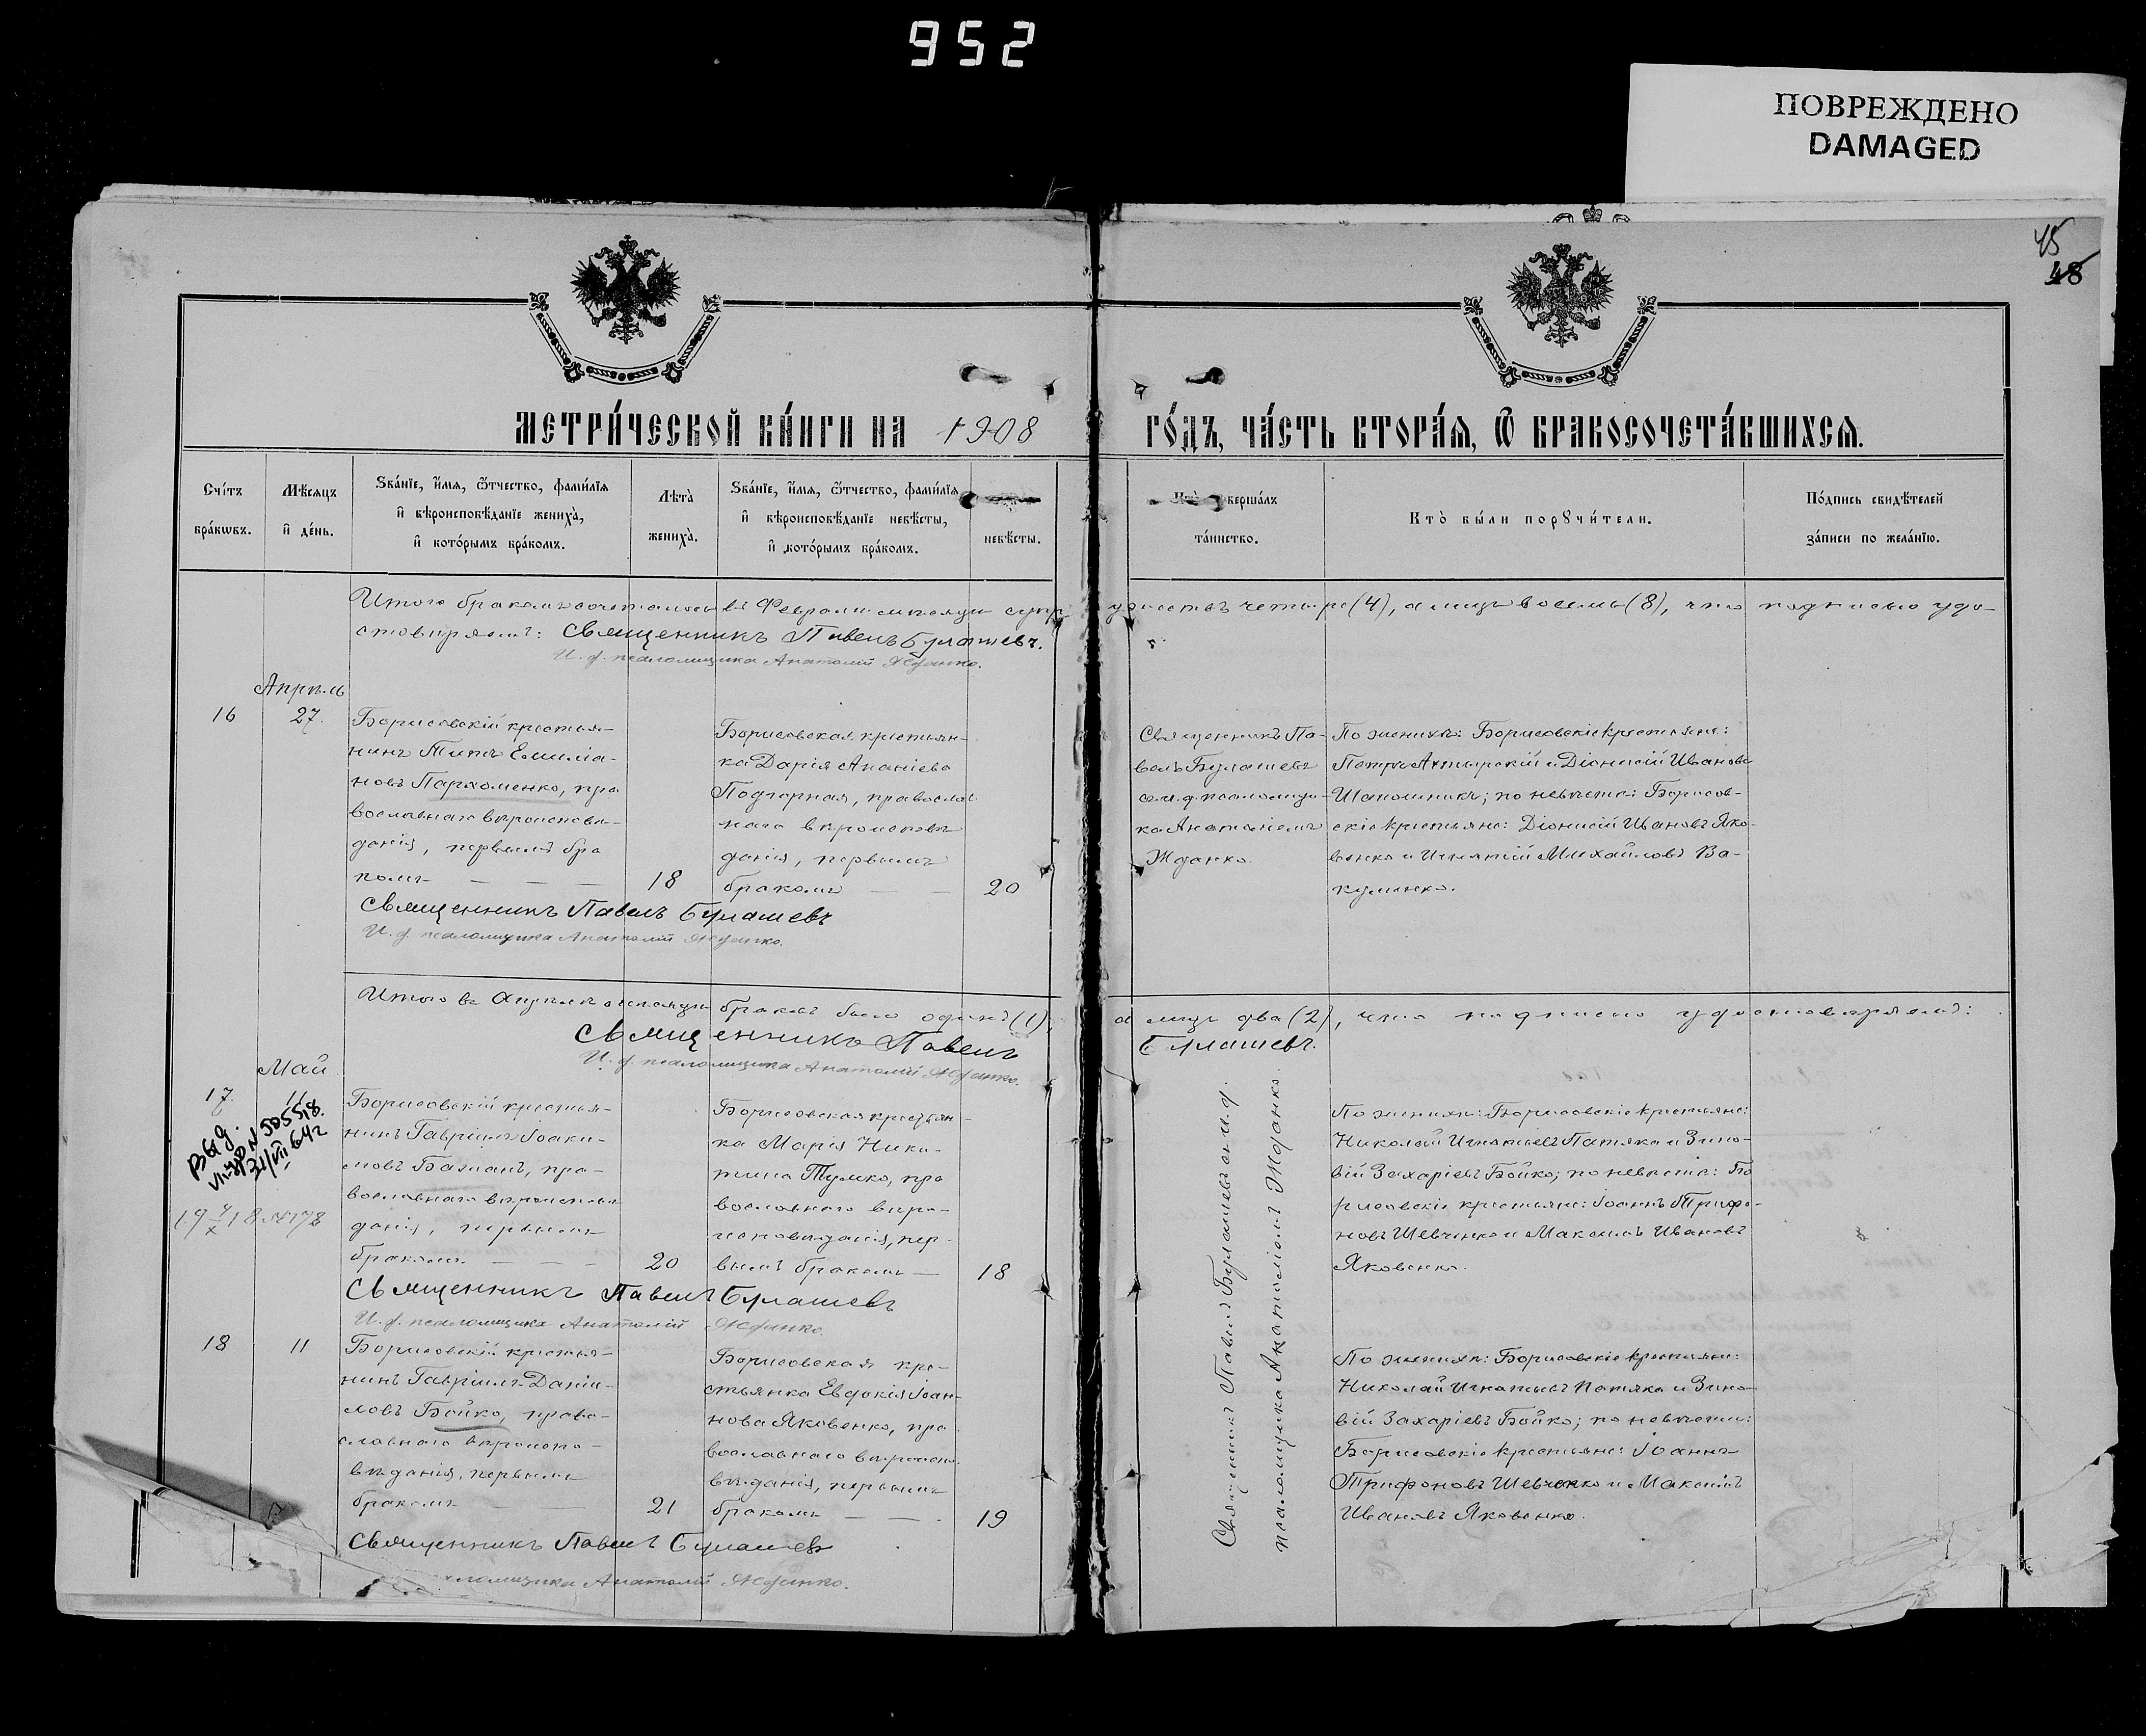 952
ПОВРЕЖДЕНО
DAMAGED
45
48
МЕТРИ́ЧЕСКОЙ КНИ́ГИ НА 1908 ГО́ДЪ, ЧА́СТЬ ВТОРА́Я, Ѽ БРАКОСОЧЕТА́ВШИХСЯ.
Сче́тъ бра́кωвъ.
Мѣ́сяцъ и҆ де́нь.
Ѕва́нїе, и҆́мя, ѻ҆́тчество, фами́лїя
и҆ вѣроисповѣ́данїе жениха̀,
и҆ кото́рымъ бра́комъ.
Лѣта̀ жениха̀.
Ѕва́нїе, и҆́мя, ѻ҆́тчество, фами́лїя
и҆ вѣроисповѣ́данїе невѣ́сты,
и҆ кото́рымъ бра́комъ.
невѣ́сты.
верша́лъ
та́инство.
Кто̀ бы́ли порꙋчи́тели.
По́дпись свидѣ́телей
за́писи по жела́нїю.
Итого бракомъ сочеталось въ Февралѣ мѣсяцѣ четыре (4), а лицъ восемь (8), что подписью удо-
стовѣряемъ: Священникъ Павелъ Булашевъ.
И. д. псаломщика Анатолій Жданко.
Апрѣль
16
27.
Борисовскій крестья-
нинъ Титъ Емилiа-
новъ Пархоменко, пра
вославнаго вѣроисповѣ-
данія, первымъ бра
комъ
18
Борисовская крестьян-
ка Дарія Ананіева
Подгорная, православ
наго вѣроисповѣ
данія, первымъ
бракомъ
20
Священникъ Па-
велъ Булашевъ
с и. д. псаломщи-
ка Анатоліемъ
Жданко.
По женихѣ: Борисовскіе крестьяне:
Петръ Ахтырскій и Діонисій Ивановъ
Шапошникъ; по невѣстѣ: Борисов-
скіе крестьяне: Діонисій Ивановъ Яко-
венко и Игнатій Михайловъ Ва-
куленко.
Священникъ Павелъ Булашевъ
И. д. псаломщика Анатолій Жданко.
Итого въ Апрѣлѣ мѣсяцѣ браковъ было одинъ (1), а лицъ два (2), что подписью удостовѣряемъ:
Священникъ Павелъ Булашевъ.
И. д. псаломщика Анатолій Жданко.
Май
17.
11
Выд.
N 505518.
31/VII 64г
Борисовскій крестья-
нинъ Гавріилъ Іоаки-
мовъ Бажанъ, пра-
вославнаго вѣроисповѣ
данія, первымъ
бракомъ
20
Борисовская крестьян-
ка Марія Ники-
тина Тумко, пра
вославнаго вѣро-
исповѣданія, пер-
вымъ бракомъ
18
Священникъ Павелъ Булашевъ с и. д.
псаломщика Анатоліемъ Жданко.
По женихѣ: Борисовскіе крестьяне:
Николай Игнатьевъ Патяка и Зино-
вій Захаріевъ Бойко; по невѣстѣ: Бо
рисовскіе крестьяне: Іоаннъ Трифо-
новъ Шевченко и Максимъ Ивановъ
Яковенко.
Священникъ Павелъ Булашевъ
И. д. псаломщика Анатолій Жданко.
18
11
Борисовскій крестья-
нинъ Гавріилъ Даніи-
ловъ Бойко, право-
славнаго вѣроиспо-
вѣданія, первымъ
бракомъ
21
Борисовская кре-
стьянка Евдокія Іоан-
нова Яковенко, пра
вославнаго вѣроиспо-
вѣданія, первымъ
бракомъ
19
По женихѣ: Борисовскіе крестьяне:
Николай Игнатьевъ Патяка и Зино-
вій Захаріевъ Бойко; по невѣстѣ:
Борисовскіе крестьяне: Іоаннъ
Трифоновъ Шевченко и Максимъ
Ивановъ Яковенко.
Священникъ Павелъ Булашевъ
псаломщика Анатолій Жданко.